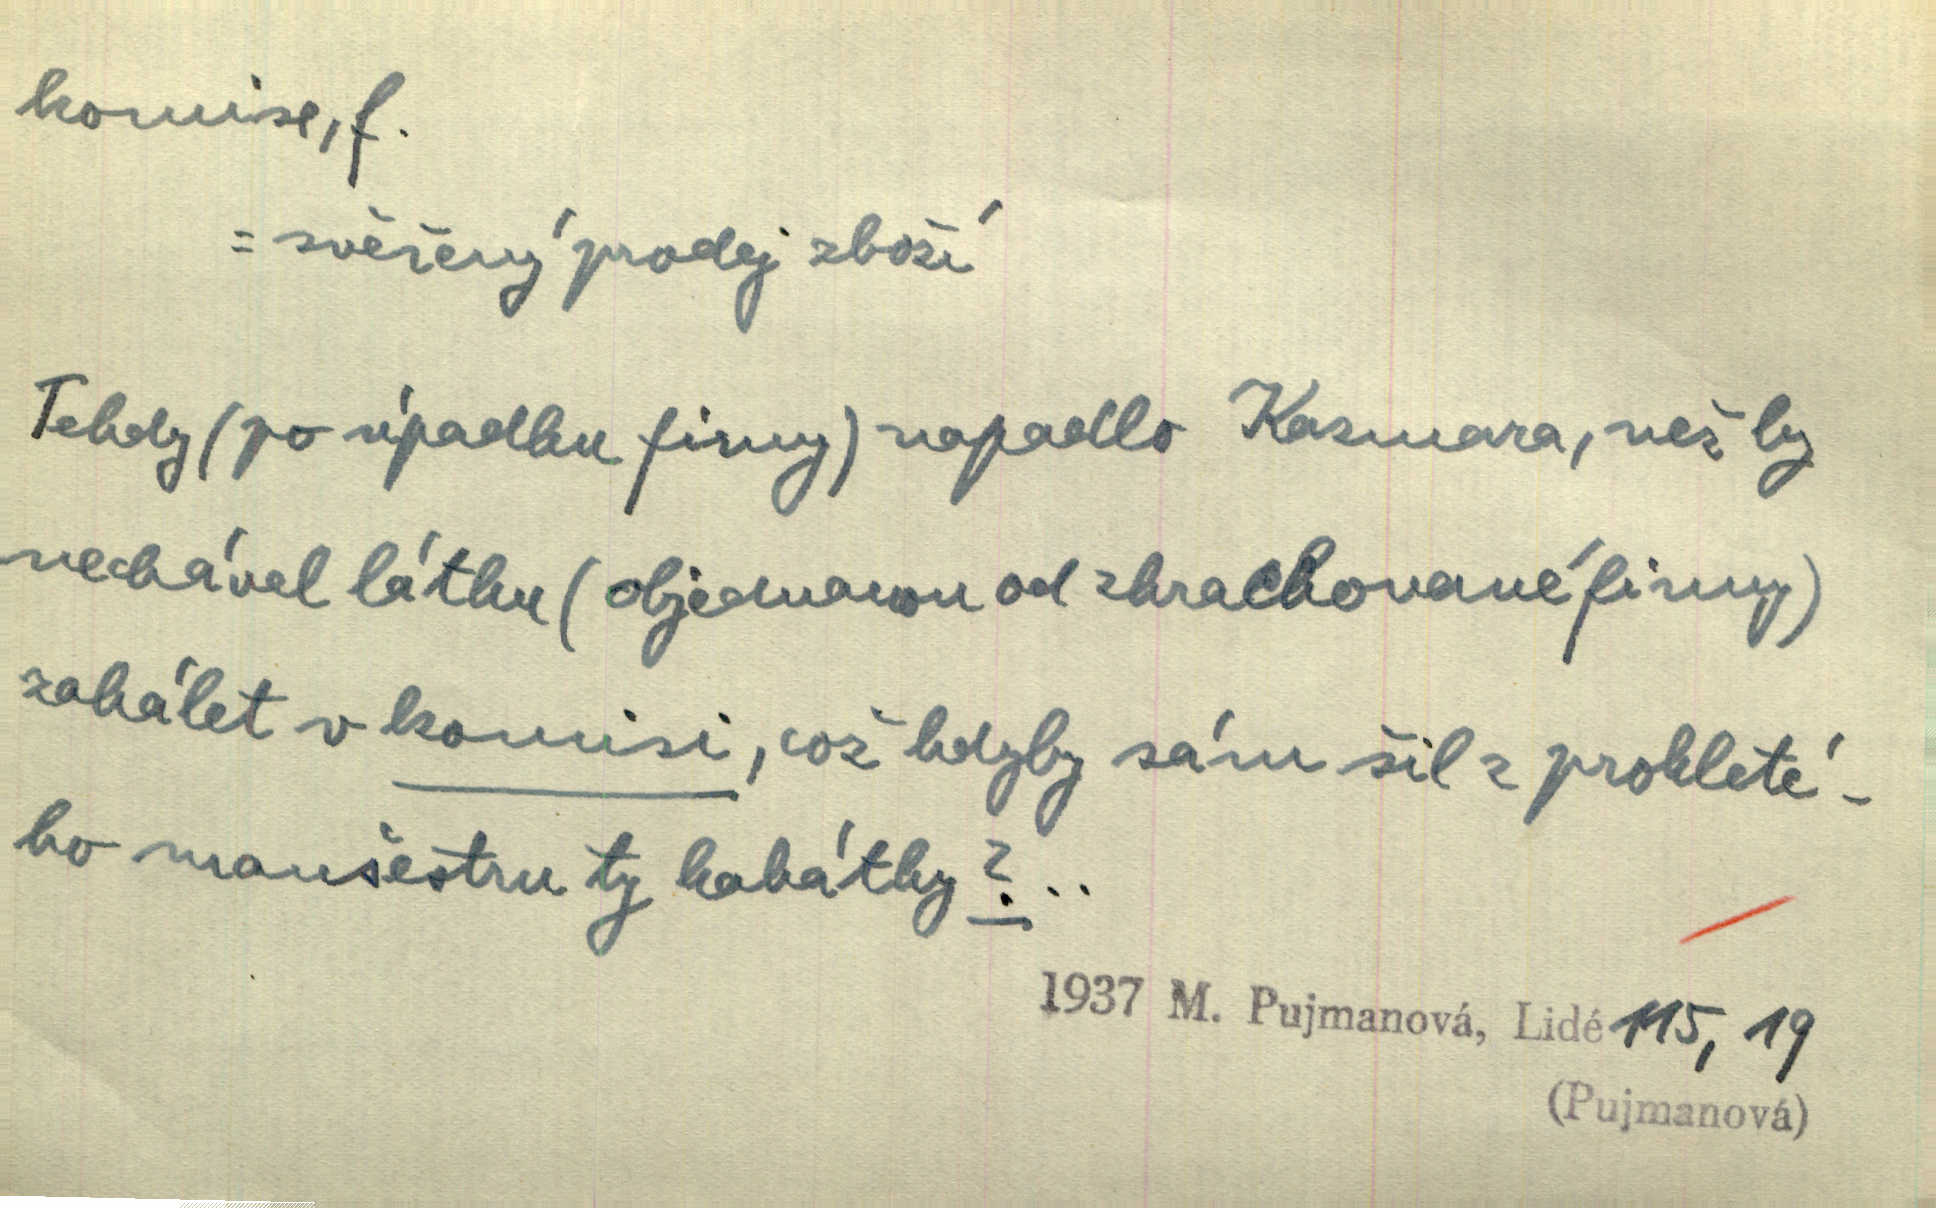 komise, f.
= svěřený prodej zboží
Tehdy (po úpadku firmy) napadlo Kazmara, než by
nechával látku (objednanou od zkrachované firmy)
zahálet v komisi, což kdyby sám šil z prokleté-
ho manšestru ty kabátky?...
1937 M. Pujmanová, Lidé 115, 19
(Pujmanová)